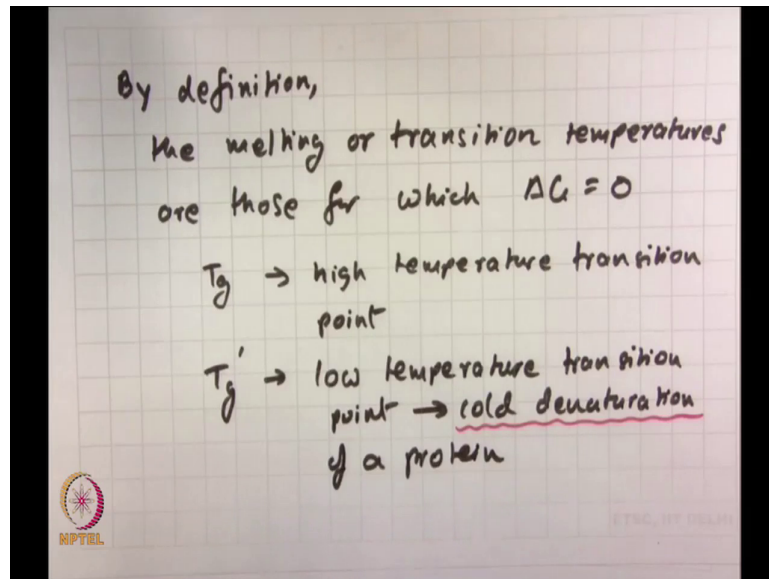 By definition,
the melting or transition temperatures
are those for which ΔG = 0
Tg → high temperature transition
point
Tg' → low temperature transition
point → cold denaturation
of a protein
NPTEL
ETSC, IIT DELHI